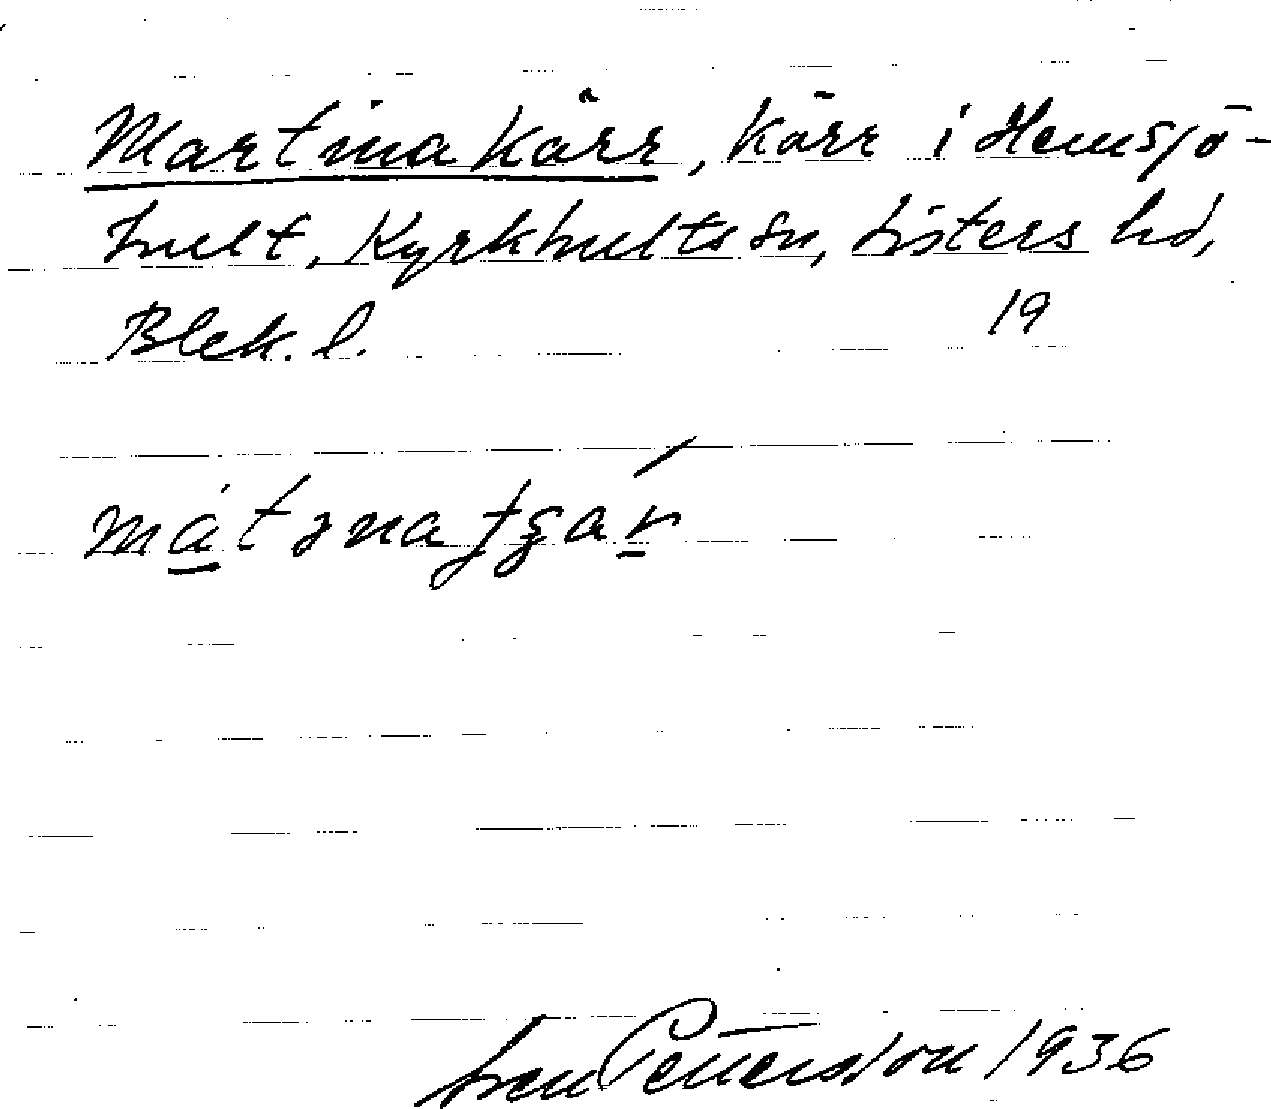 Martina Kärr, Kärr i Hemsjö-
hult, Kyrkhults sn, Listers hd,
Blek. l. 19
Sven Pettersson 1936